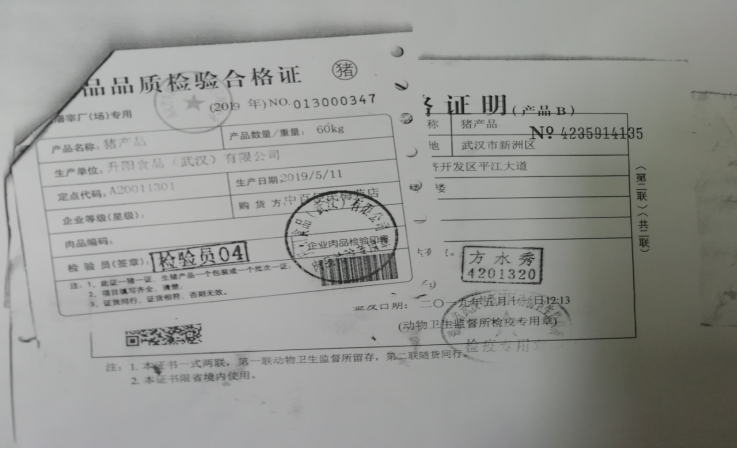 品品质检验合格证 猪
(2019 年)NO.013000347
屠宰厂(场)专用
产品名称: 猪产品
产品数量/重量: 60kg
生产单位: 升阳食品(武汉)有限公司
定点代码: A20011301
生产日期 2019/5/11
企业等级(星级):
购 货 方
肉品编码:
检 验 员(签章): 检验员04
企业肉品检验印章
注: 1、此证一猪一证、生猪产品一个包装或一个批次一证.
2、项目填写齐全、清楚.
3、证货同行、证货相符、否则无效.
证明(产品 B)
称 猪产品
№ 4235914135
地 武汉市新洲区
开发区平江大道
楼
(第二联)(共二联)
方水秀
4201320
签发日期: 二〇一九年五月十 日12:13
(动物卫生监督所检疫专用章)
检疫专用
注: 1. 本证书一式两联, 第一联动物卫生监督所留存, 第二联随货同行.
2. 本证书限省境内使用.